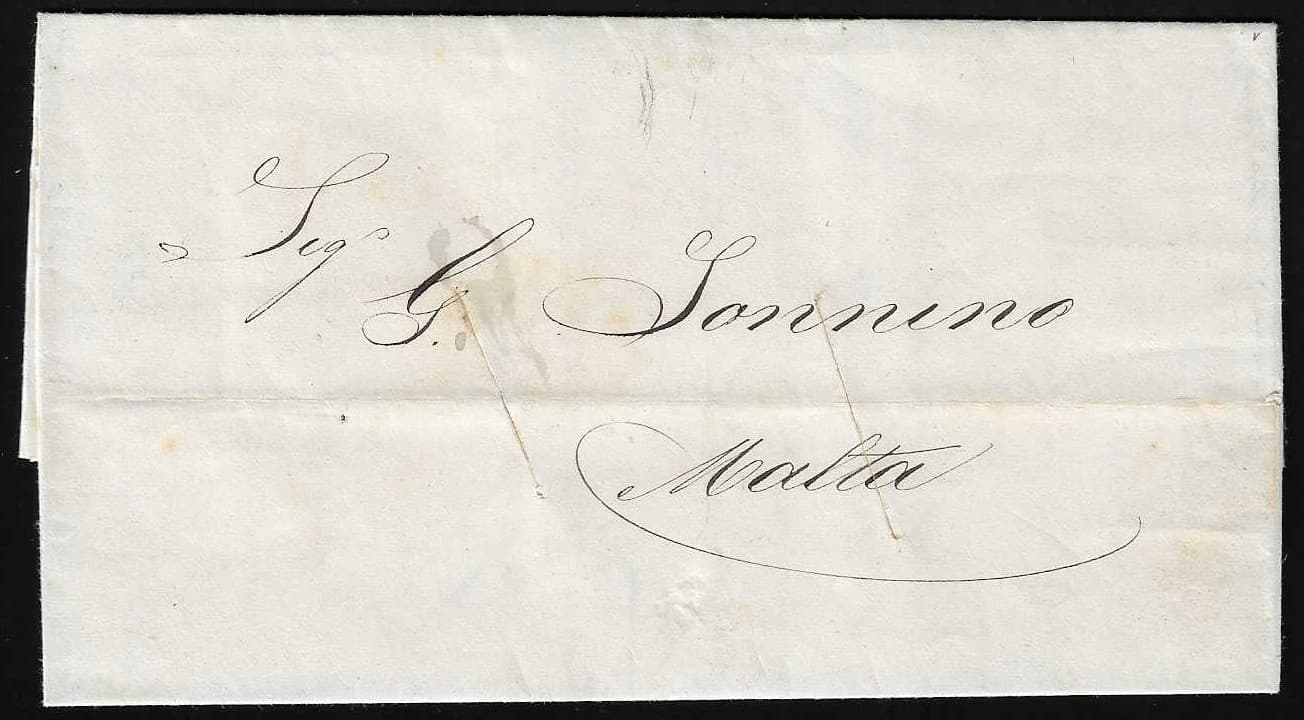 Sigr
G. Sonnino
Malta